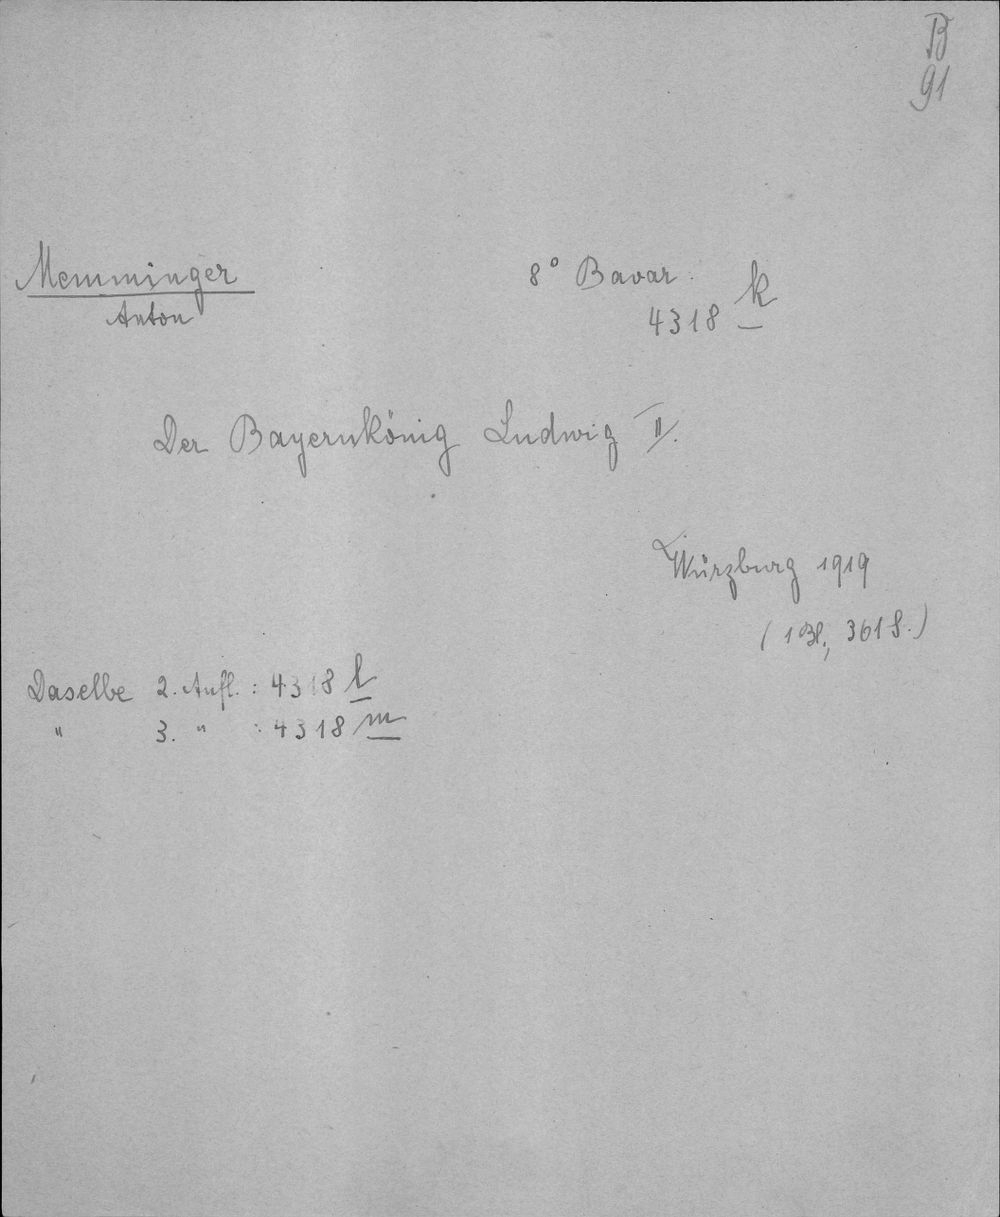 B
91
Memminger
Anton
8° Bavar.
4318 k
Der Bayernkönig Ludwig II.
Würzburg 1919
(1 Bl., 361 S.)
Daselbe 2. Aufl. : 4318 l
" 3. " : 4318 m